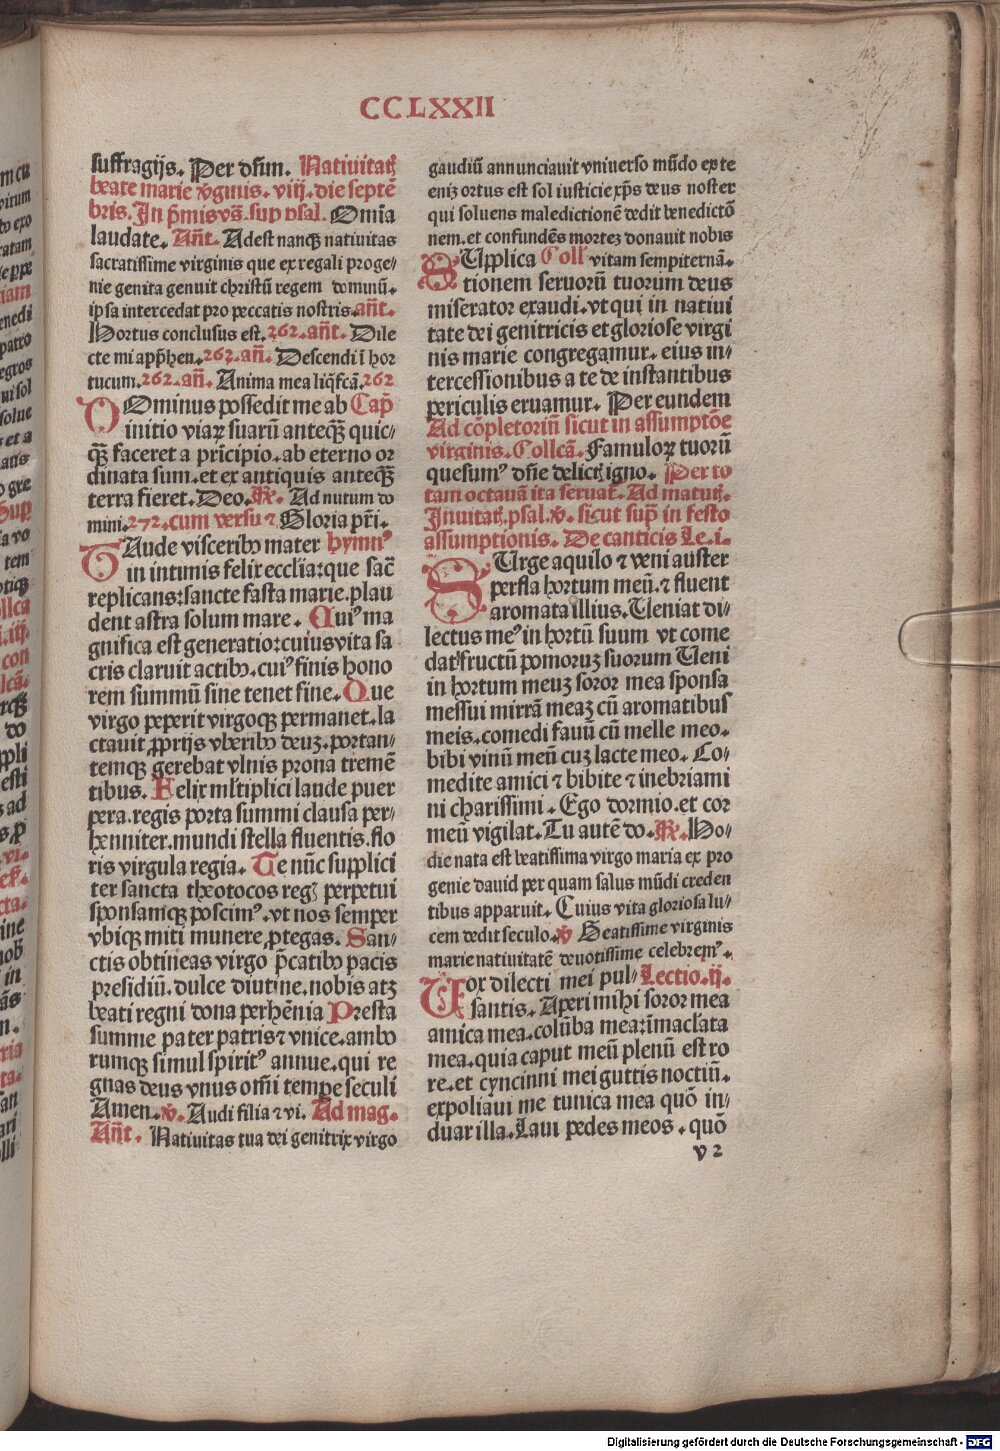 CCLXXII
suffragijs. Per dñm. Natiuitatꝭ
beate marie ꝟginis. viij. die septē
bris. In p̄mis vs̄. sup psal. Omnia
laudate. Añt. Adest nanqꝫ natiuitas
sacratissime virginis que ex regali proge⸗
nie genita genuit christū regem dominū.
ipsa intercedat pro peccatis nostris. añt.
Hortus conclusus est. 262. añt. Dile
cte mi app̄hen. 262. añ. Descendi ī hor
tucum. 262. añ. Anima mea liq̄fcā. 262
DOminus possedit me ab Cap̄
initio viaꝝ suarū anteqꝫ quic⸗
qꝫ faceret a prīcipio. ab eterno or
dinata sum. et ex antiquis anteqꝫ
terra fieret. Deo. ℟. Ad nutum do
mini. 272. cum versu ⁊ Gloria pr̄i.
GAude visceribꝰ mater hymnꝰ
in intimis felix ecclīa: que sac̄
replicans: sancte fasta marie. plau
dent astra solum mare. Cuiꝰ ma
gnifica est generatio: cuius vita sa
cris claruit actibꝰ. cuiꝰ finis hono
rem summū sine tenet fine. Que
virgo peperit virgoqꝫ permanet. la
ctauit ꝓprijs vberibꝰ deuꝫ. portan⸗
temqꝫ gerebat vlnis prona tremē
tibus. Felix ml̄tiplici laude puer
pera. regis porta summi clausa per⸗
henniter. mundi stella fluentis. flo
ris virgula regia. Te nūc supplici
ter sancta theotocos regꝭ perpetui
sponsamqꝫ poscimꝰ. vt nos semper
vbiqꝫ miti munere ꝓtegas. San⸗
ctis obtineas virgo p̄catibꝰ pacis
presidiū. dulce diutine. nobis atqꝫ
beati regni dona perhēnia Presta
summe pater patris ⁊ vnice. ambo
rumqꝫ simul spiritꝰ annue. qui re
gnas deus vnus om̄i tempe seculi
Amen. ℣. Audi filia ⁊ vi. Ad mag.
Añt. Natiuitas tua dei genitrix virgo
gaudiū annunciauit vniuerso mūdo ex te
enīꝫ ortus est sol iusticie xp̄s deus noster
qui soluens maledictionē dedit benedictō
nem. et confundēs morteꝫ donauit nobis
SUpplica Coll̄ vitam sempiternā.
tionem seruorū tuorum deus
miserator exaudi. vt qui in natiui
tate dei genitricis et gloriose virgi
nis marie congregamur. eius in⸗
tercessionibus a te de instantibus
periculis eruamur. Per eundem
Ad cōpletoriū sicut in assumptōe
virginis. Collcā. Famuloꝝ tuorū
quesumꝰ dn̄e delictꝭ igno. Per to
tam octauā ita seruat̄. Ad matutꝭ.
Inuitatꝭ. psal. ℣. sicut sup̄ in festo
assumptionis. De canticis Le. i.
SUrge aquilo ⁊ veni auster
perfla hortum meū. ⁊ fluent
aromata illius. Ueniat di⸗
lectus meꝰ in hortū suum vt come
dat fructū pomoruꝫ suorum Ueni
in hortum meuꝫ soror mea sponsa
messui mirrā meaꝫ cū aromatibus
meis. comedi fauū cū melle meo.
bibi vinū meū cuꝫ lacte meo. Co⸗
medite amici ⁊ bibite ⁊ inebriami
ni charissimi. Ego dormio. et cor
meū vigilat. Tu autē do. ℟. Ho⸗
die nata est beatissima virgo maria ex pro
genie dauid per quam salus mūdi creden
tibus apparuit. Cuius vita gloriosa lu⸗
cem dedit seculo. ℣ Beatissime virginis
marie natiuitatē deuotissime celebremꝰ.
UOx dilecti mei pul⸗ Lectio. ij.
santis. Aperi mihi soror mea
amica mea. colūba mea: īmacl̄ata
mea. quia caput meū plenū est ro
re. et cyncinni mei guttis noctiū.
expoliaui me tunica mea quō in⸗
duar illa. Laui pedes meos. quō
v 2
Digitalisierung gefördert durch die Deutsche Forschungsgemeinschaft - DFG